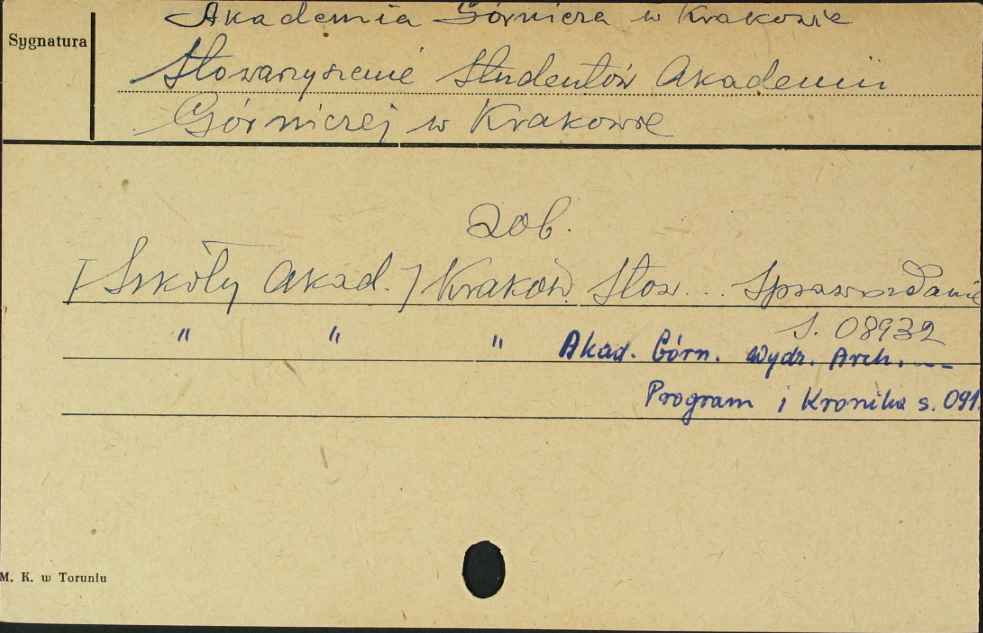 Akademia Górnicza w Krakowie
Sygnatura
Stowarzyszenie Studentów Akademii
Górniczej w Krakowie
zob.
[Szkoły Akad.] Kraków. Stow... Sprawozdanie
S. 08932
" " " Akad. Górn. Wydz. Arch. ---
Program i Kronika s. 091
M. K. w Toruniu